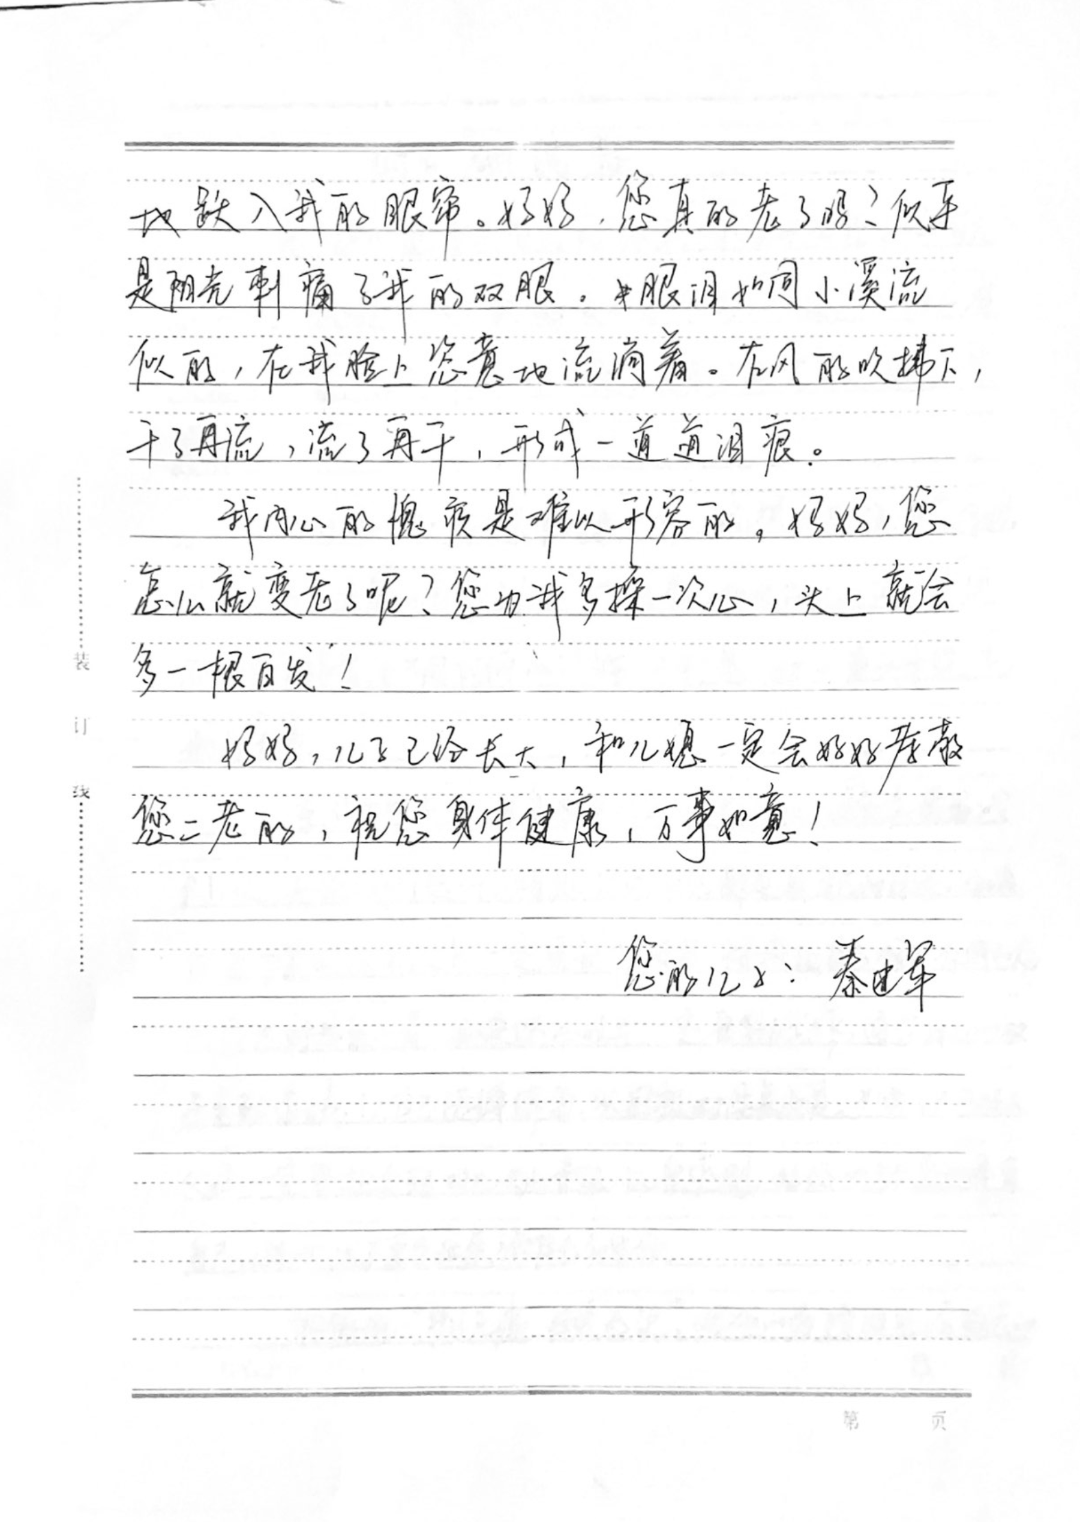 地跌入我的眼帘。妈妈，您真的老了吗？似乎
是阳光刺痛了我的双眼。眼泪如同小溪流
似的，在我脸上恣意地流淌着。在风的吹拂下，
干了再流，流了再干，形成一道道泪痕。
我内心的愧疚是难以形容的。妈妈，您
怎么就变老了呢？您为我多操一次心，头上就会
多一根白发！
妈妈，儿子已经长大，和儿媳一定会好好孝敬
您二老的，祝您身体健康，万事如意！
您的儿子：秦建军
装
订
线
第 页